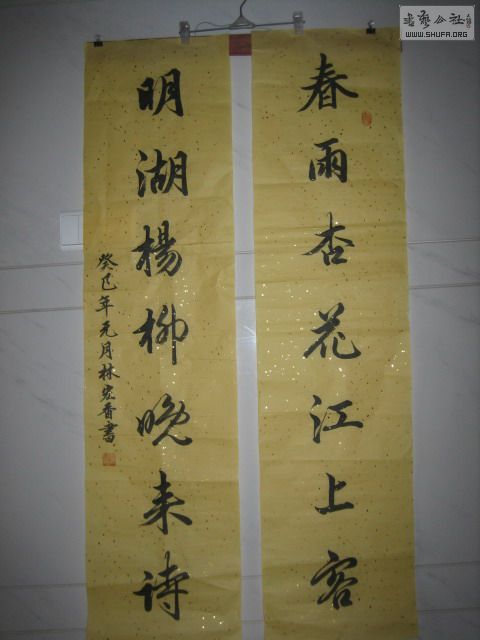 春雨杏花江上客
明湖楊柳晚来诗
癸巳年元月林宏香書
書藝公社
WWW.SHUFA.ORG